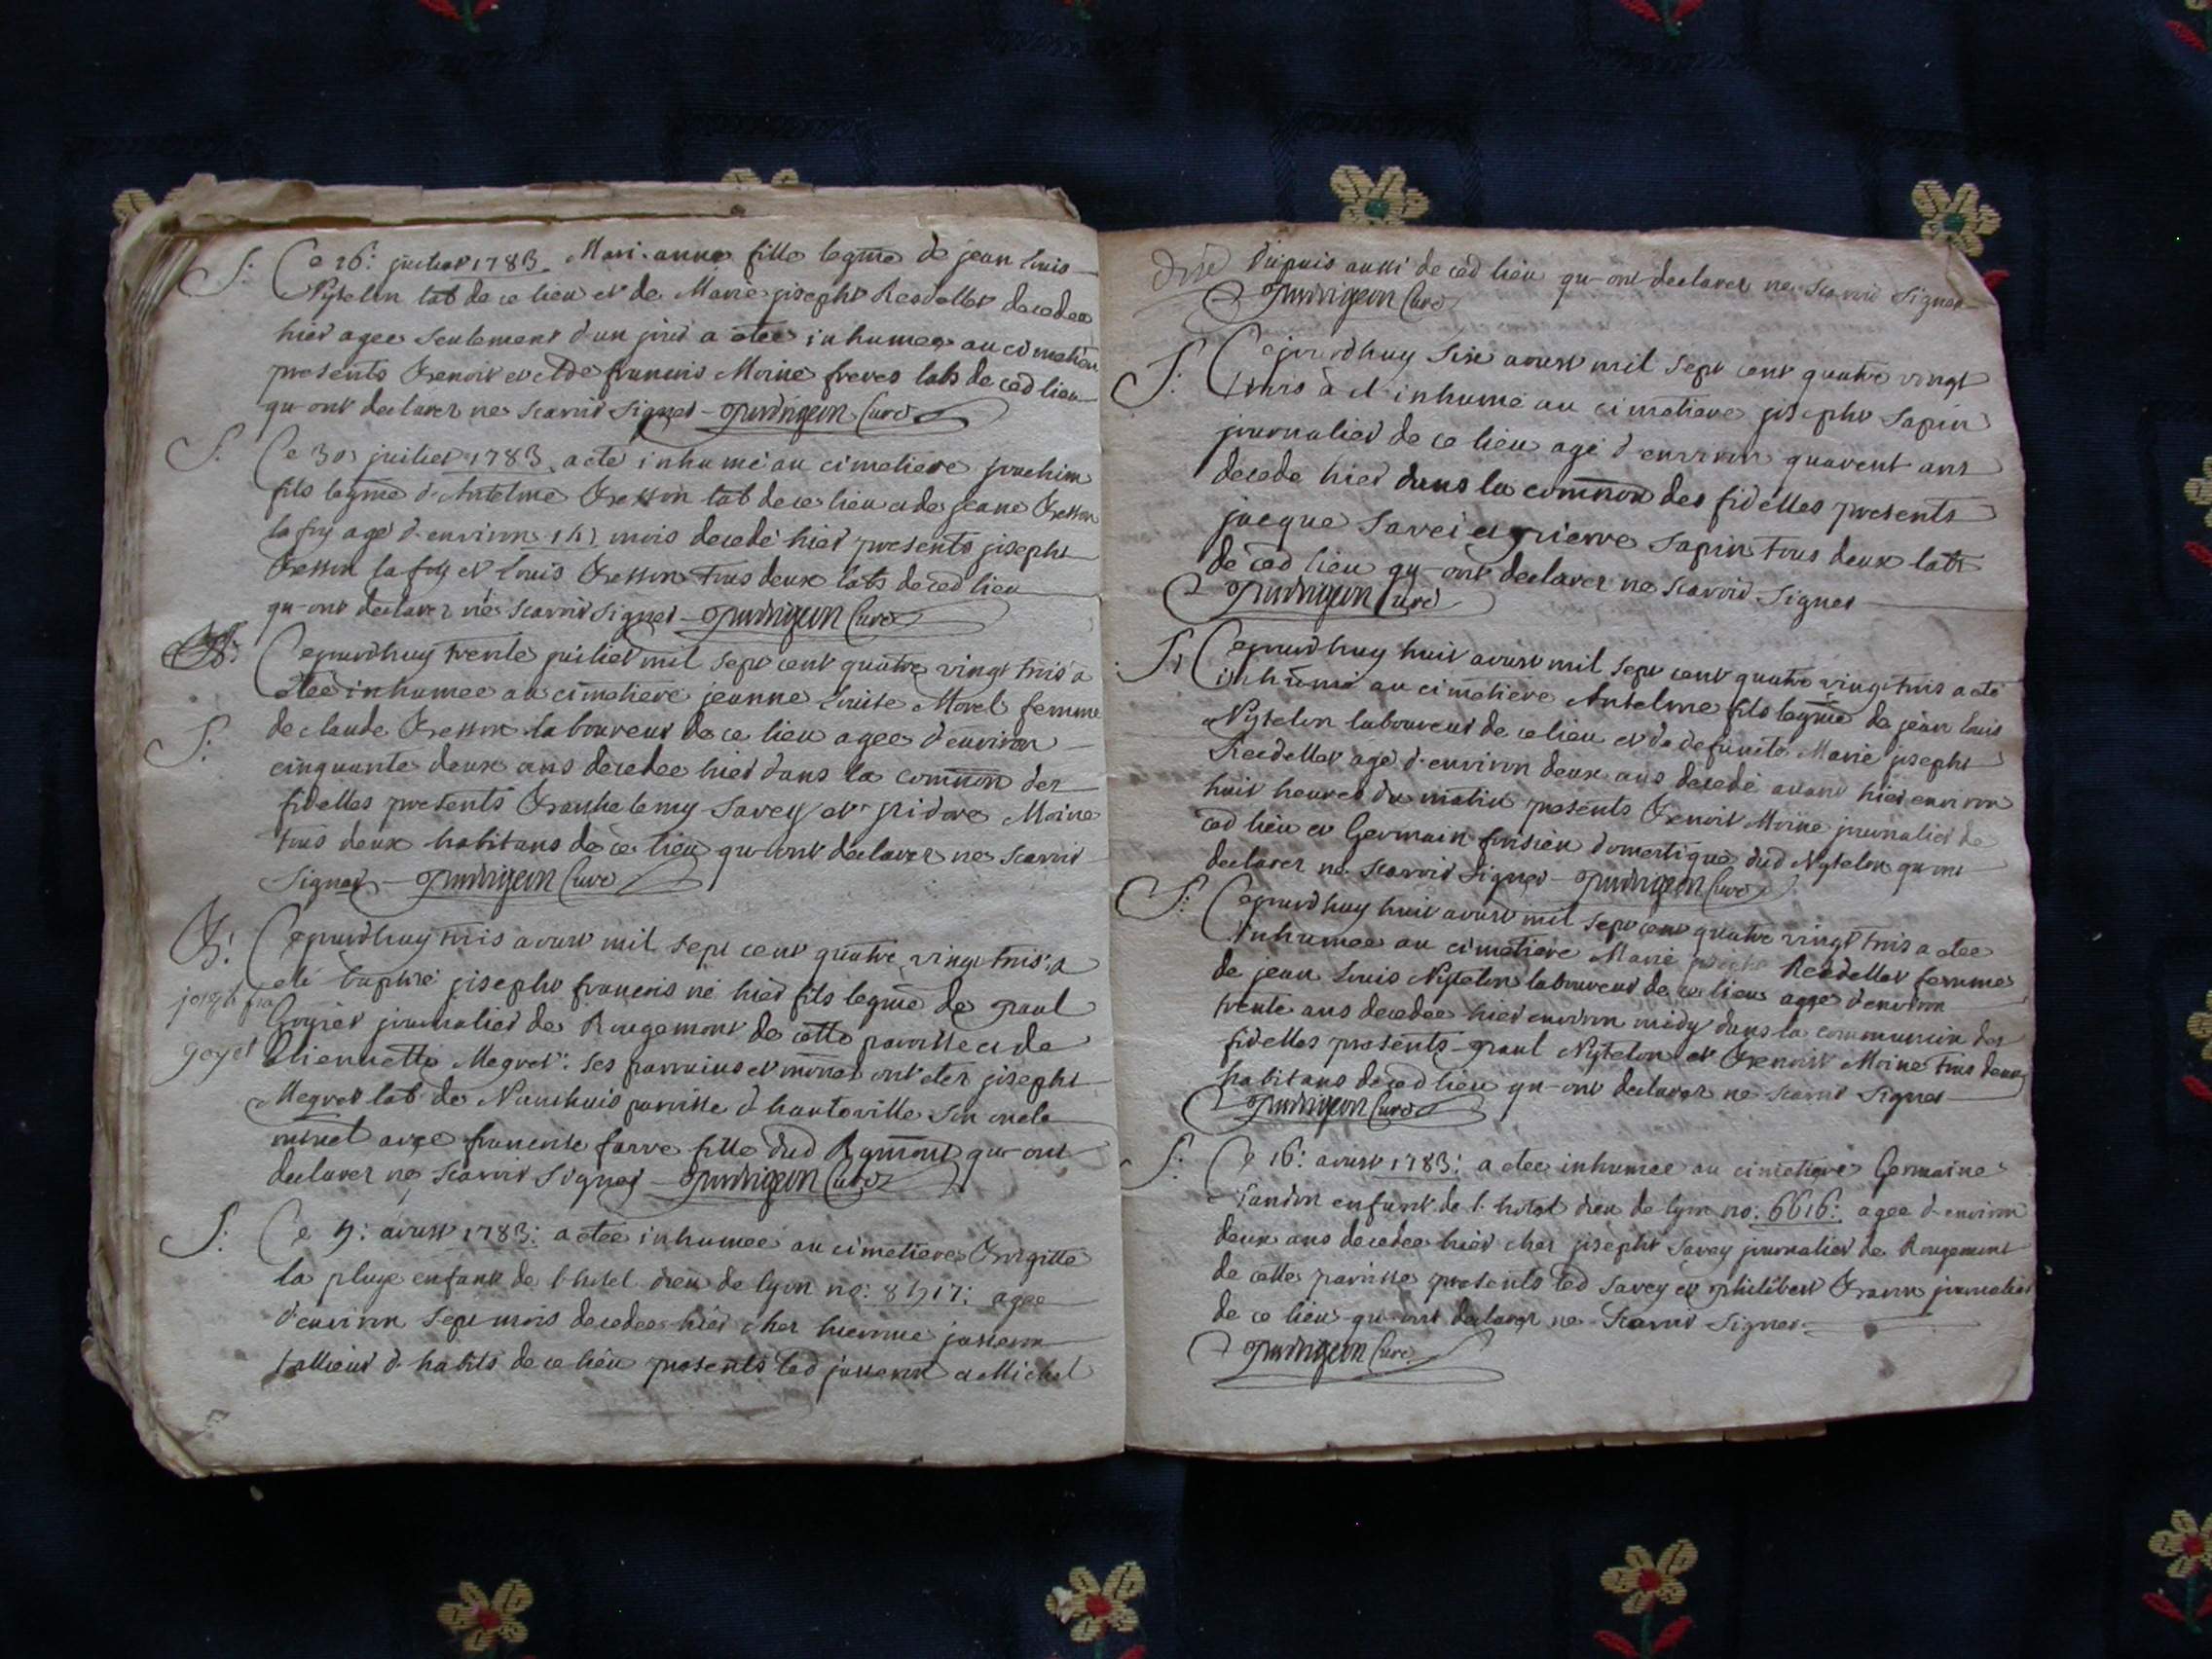 S. Ce 26: juilliet 1783 Mari-anne fille legme de jean louis
Nytelon lab de ce lieu et de Marie josephe Readellet decedee
hier agee seulement d'un jour a etee inhumee au cimetiere
presents Benoit et de françois Moine freres labs de ced lieu
qu-ont declarer ne scavoir signer Curé
S. Ce 30 juiliet 1783 a eté inhumé au cimetiere joachim
fils legme d'Antelme Besson lab de ce lieu et de jeane Besson
la foy agé d'environ mois decedé hier presents josephe
Besson la foy et louis Besson tous deux labs de ced lieu
qu-ont declarer ne scavoir signer Curé
Cejourdhuy trente juiliet mil sept cent quatre vingt trois a
etee inhumee au cimetiere jeanne louise Morel femme
S. de claude Besson laboureur de ce lieu agee d'environ
cinquante deux ans decedee hier dans la comunon des
fidelles presents Barthelemy Savey et isidore Moine
tous deux habitans de ce lieu qu-ont declarer ne scavoir
signer Curé
B: Cejourdhuy trois aoust mil sept cent quatre vingt trois a
eté baptisé josephe françois né hier fils legme de paul
joseph fra
Goyet journalier de Rougemont de cette parroisse et de
goyet
Etiennette Megret: ses parrains et ont eter josephe
Megret lab de parroisse d'hauteville son oncle
avec françoise farve fille dud qu-ont
declarer ne scavoir signer Curé
S: Ce 4: aoust 1783: a etee inhumee au cimetiere Brigitte
la pluye enfant de l'hotel dieu de lyon no: agee
d'environ sept mois decedee hier cher
tallieur d'habits de ce lieu presents led et Michel
Dupuis aussi de ced lieu qu-ont declarer ne scavoir signer
Curé
S: Cejourdhuy six aoust mil sept cent quatre vingt
trois à eté inhumé au cimetiere josephe Sapin
journalier de ce lieu agé d'environ quarent ans
decede hier dans la comunon des fidelles presents
jacque Savei et pierre Sapin tous deux labs
de ced lieu qu-ont declarer ne scavoir signer
Curé
S: Cejourdhuy huit aoust mil sept cent quatre vingt trois a eté
inhumé au cimetiere Antelme fils legme de jean louis
Nytelon laboureur de ce lieu et de defunte Marie josephe
Readellet agé d'environ deux ans decedé avant hier environ
huit heures du matin presents Benoit Moine journalier de
ced lieu et Germain domestique dud Nytelon qu-ont
declarer ne scavoir signer Curé
S: Cejourdhuy huit aoust mil sept cent quatre vingt trois a etee
inhumee au cimetiere Marie josephe Readellet femme
de jean louis Nytelon laboureur de ce lieu agee d'environ
trente ans decedee hier environ midy dans la communion des
fidelles presents paul Nytelon et Benoist Moine tous deux
habitans de ced lieu qu-ont declarer ne scavoir signer
Curé
S: Ce 16: aoust 1783: a etee inhumee au cimetiere Germaine
enfant de l'hotel dieu de lyon no: 6616: agee d'environ
deux ans decedee hier cher josephe Savey journalier de Rougemont
de cette parroisse presents led Savey et philibert journalier
de ce lieu qu-ont declarer ne scavoir signer
Curé